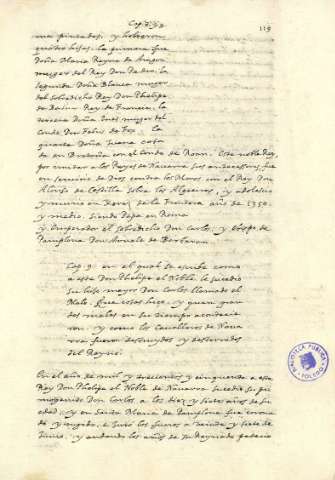 Cap. 8. 119
mas pintados, y hobieron
quatro hijas. La primera fue
Doña Maria Reyna de Aragon
muger del Rey Don Pedro, la
segunda Doña Blanca muger
del sobredicho Rey Don Phelipe
de Rey de Francia, la
tercera Doña Ines muger del
Conde Don Febus de Fox, la
quarta Doña Juana casa
da en Bretaña con el Conde de Roan. Este noble Rey,
por a los Reyes de Navarra sus ancessores, fue
en servicio de Dios contra los Moros con el Rey Don
Alonso de Castilla sobre las Algeciras, y adolescio
y murio en Xerez de la Frontera año de 1350.
y medio, siendo Papa en Roma
y Emperador el sobredicho Don Carlos, y obispo de
Pamplona Don Arnalt de Barbazan
Cap. 9. en el qual se escribe como
a este Don Phelipe el Noble le sucedio
su hijo mayor Don Carlos llamado el
Malo. Que cosas hizo, y quan gran
des males en su tiempo acontecie
ron, y como los Caballeros de Nava
rra fueron destruydos y desterrados
del Reyno.
En el año de mil y trecientos y cinquenta a este
Rey Don Phelipe el Noble de Navarra sucedio su pri
mogenito Don Carlos a los diez y siete años de su
edad, y en Santa Maria de Pamplona fue corona
do y ungido, e juró los fueros a veinte y siete de
Junio, y andando los años de su Reynado padecio
BIBLIOTECA PUBLICA
TOLEDO